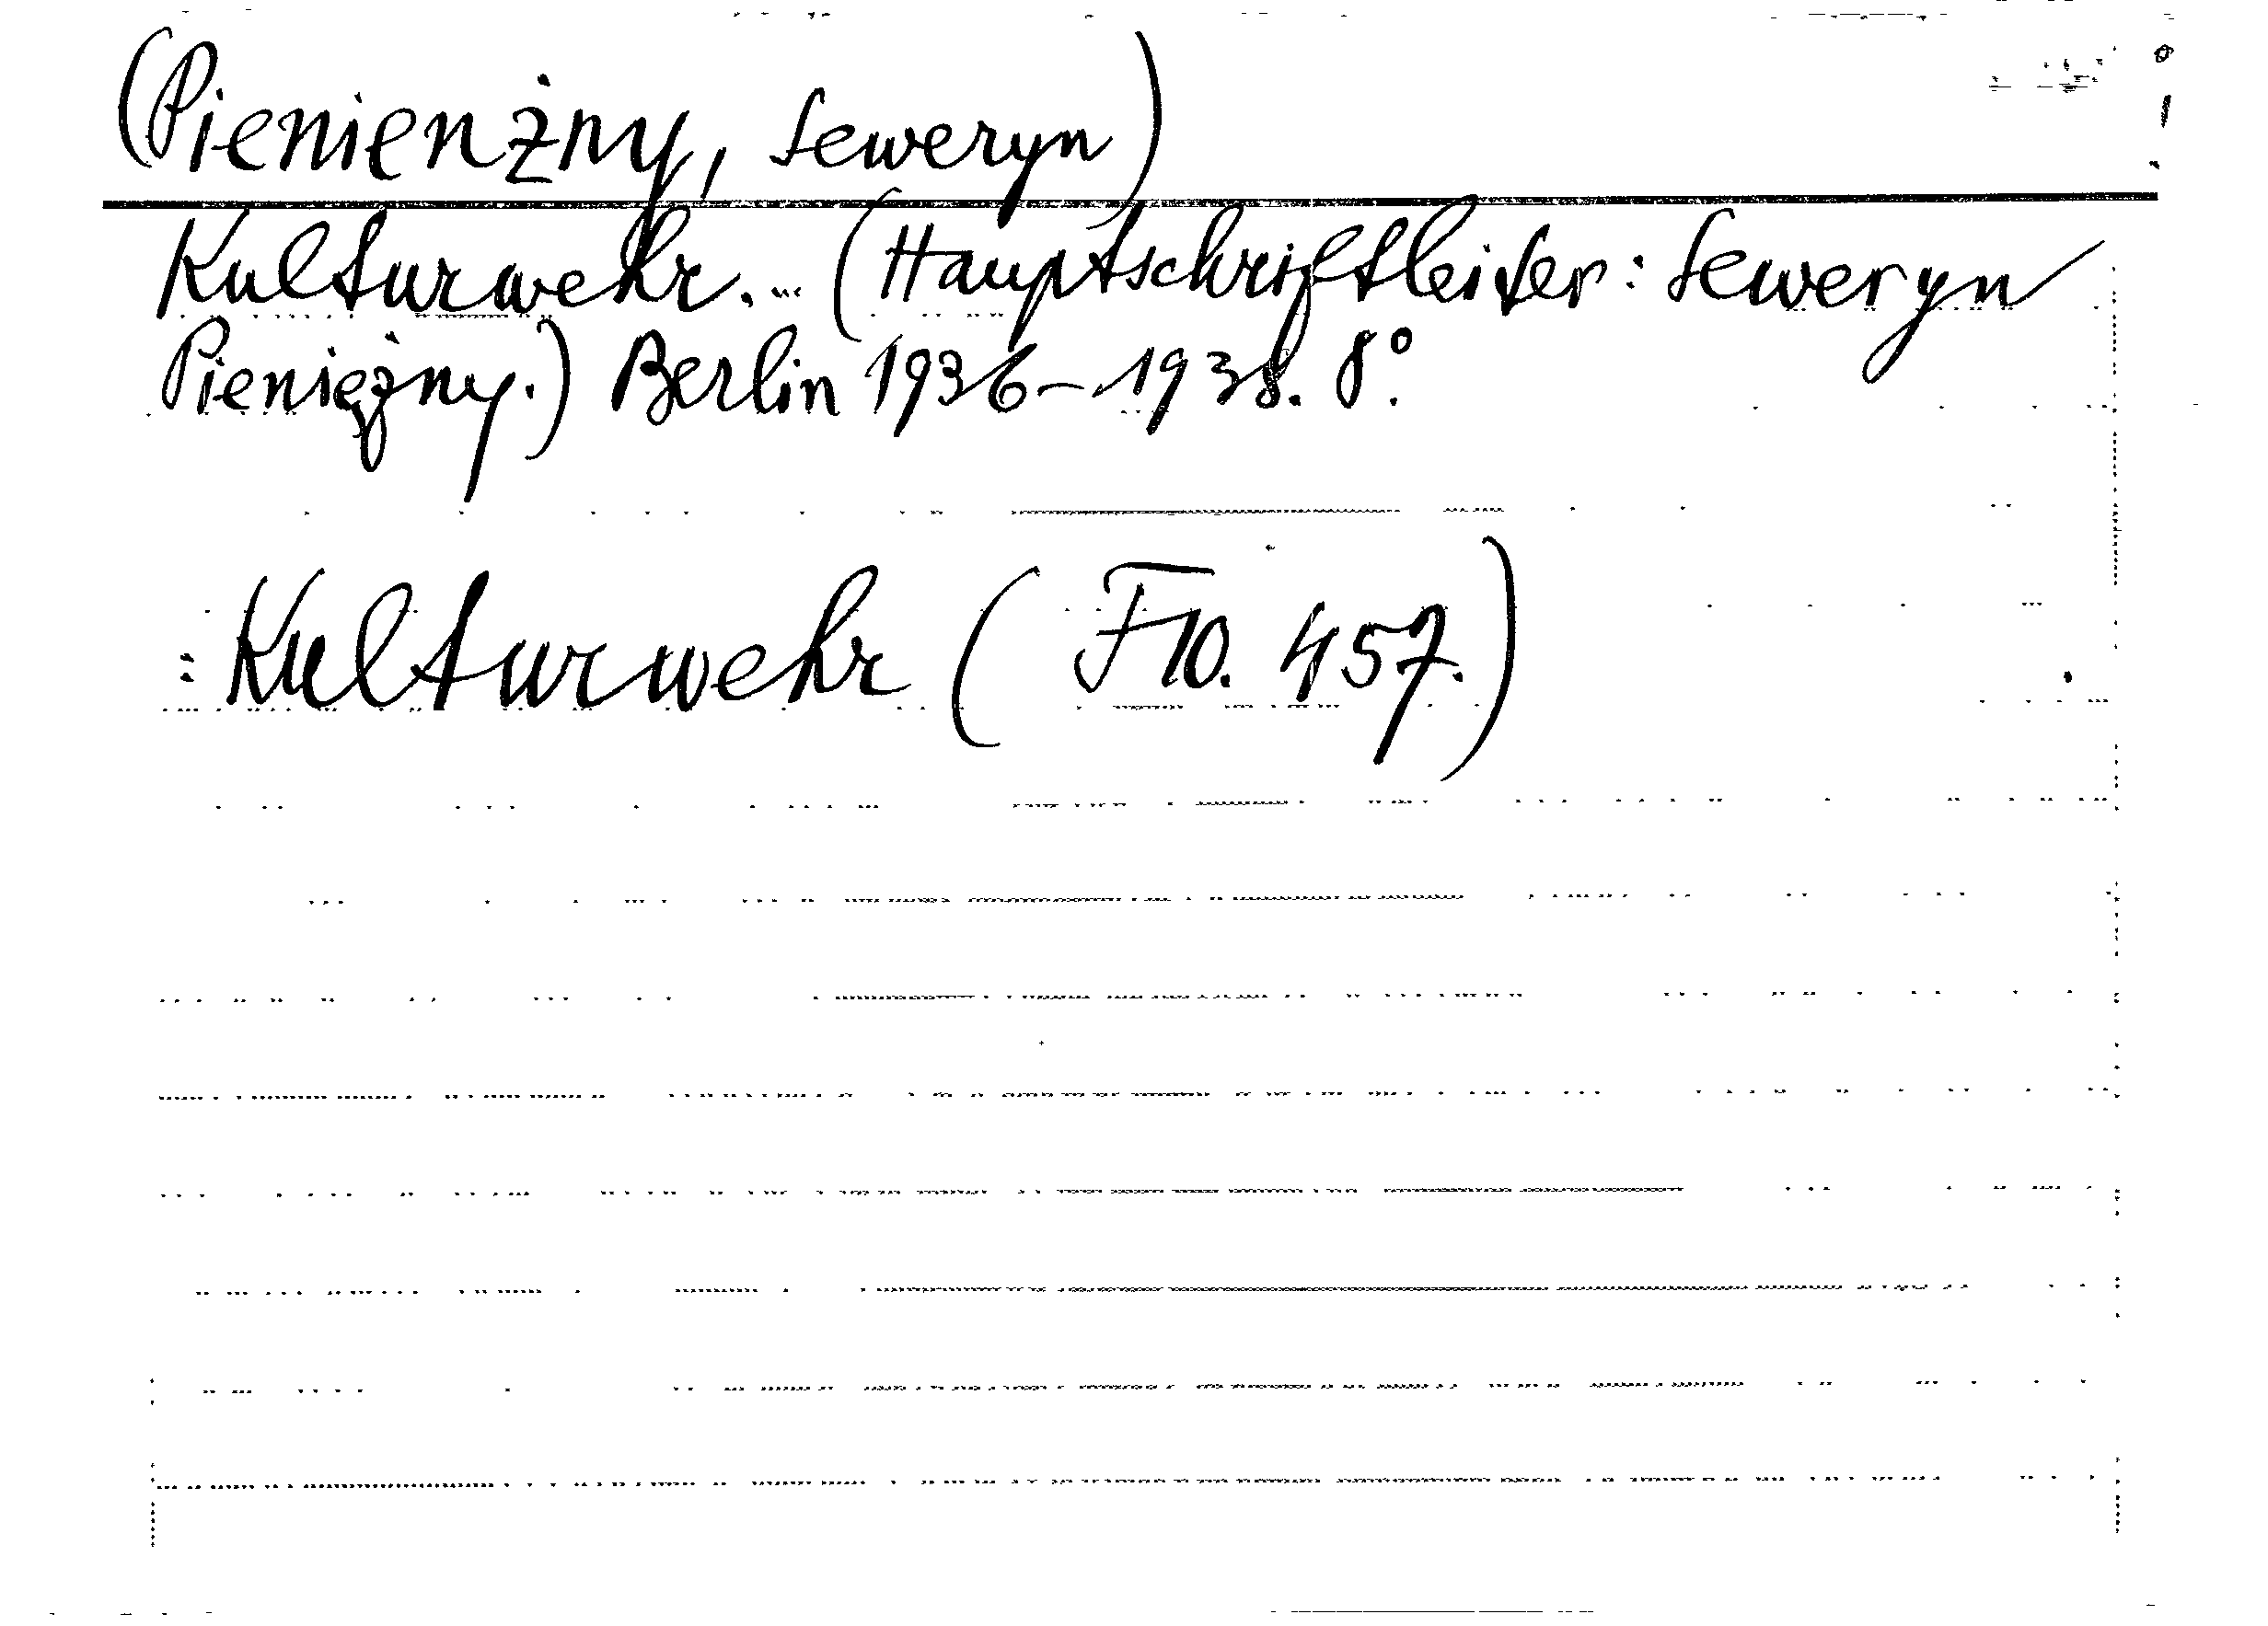 (Pienienżny, Seweryn)
Kulturwehr. ... (Hauptschriftleiter: Seweryn
Pieniężny.) Berlin 1936-1938. 8°.
: Kulturwehr (F10. 457.)